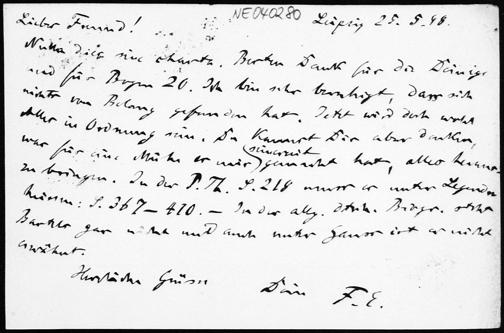 NE040280
Lieber Freund! Leipzig 25. 5. 98.
Nulla dies sine charta. Besten Dank für die Dinge
und für Bogen 20. Ich bin sehr beruhigt, dass sich
nichts von Belang gefunden hat. Jetzt wird doch wohl
Alles in Ordnung sein. Du kannst Dir aber denken,
was für eine Mühe es mir seinerzeit gemacht hat, alles heraus
zu bringen. In der P. Th. S. 218 muss es unter Legendre
heissen: S. 367–410. – In der allg. dtsch. Biogr. steht
Bartels gar nicht und auch unter Gauss ist er nicht
erwähnt.
Herzlichen Gruss
Dein F. E.